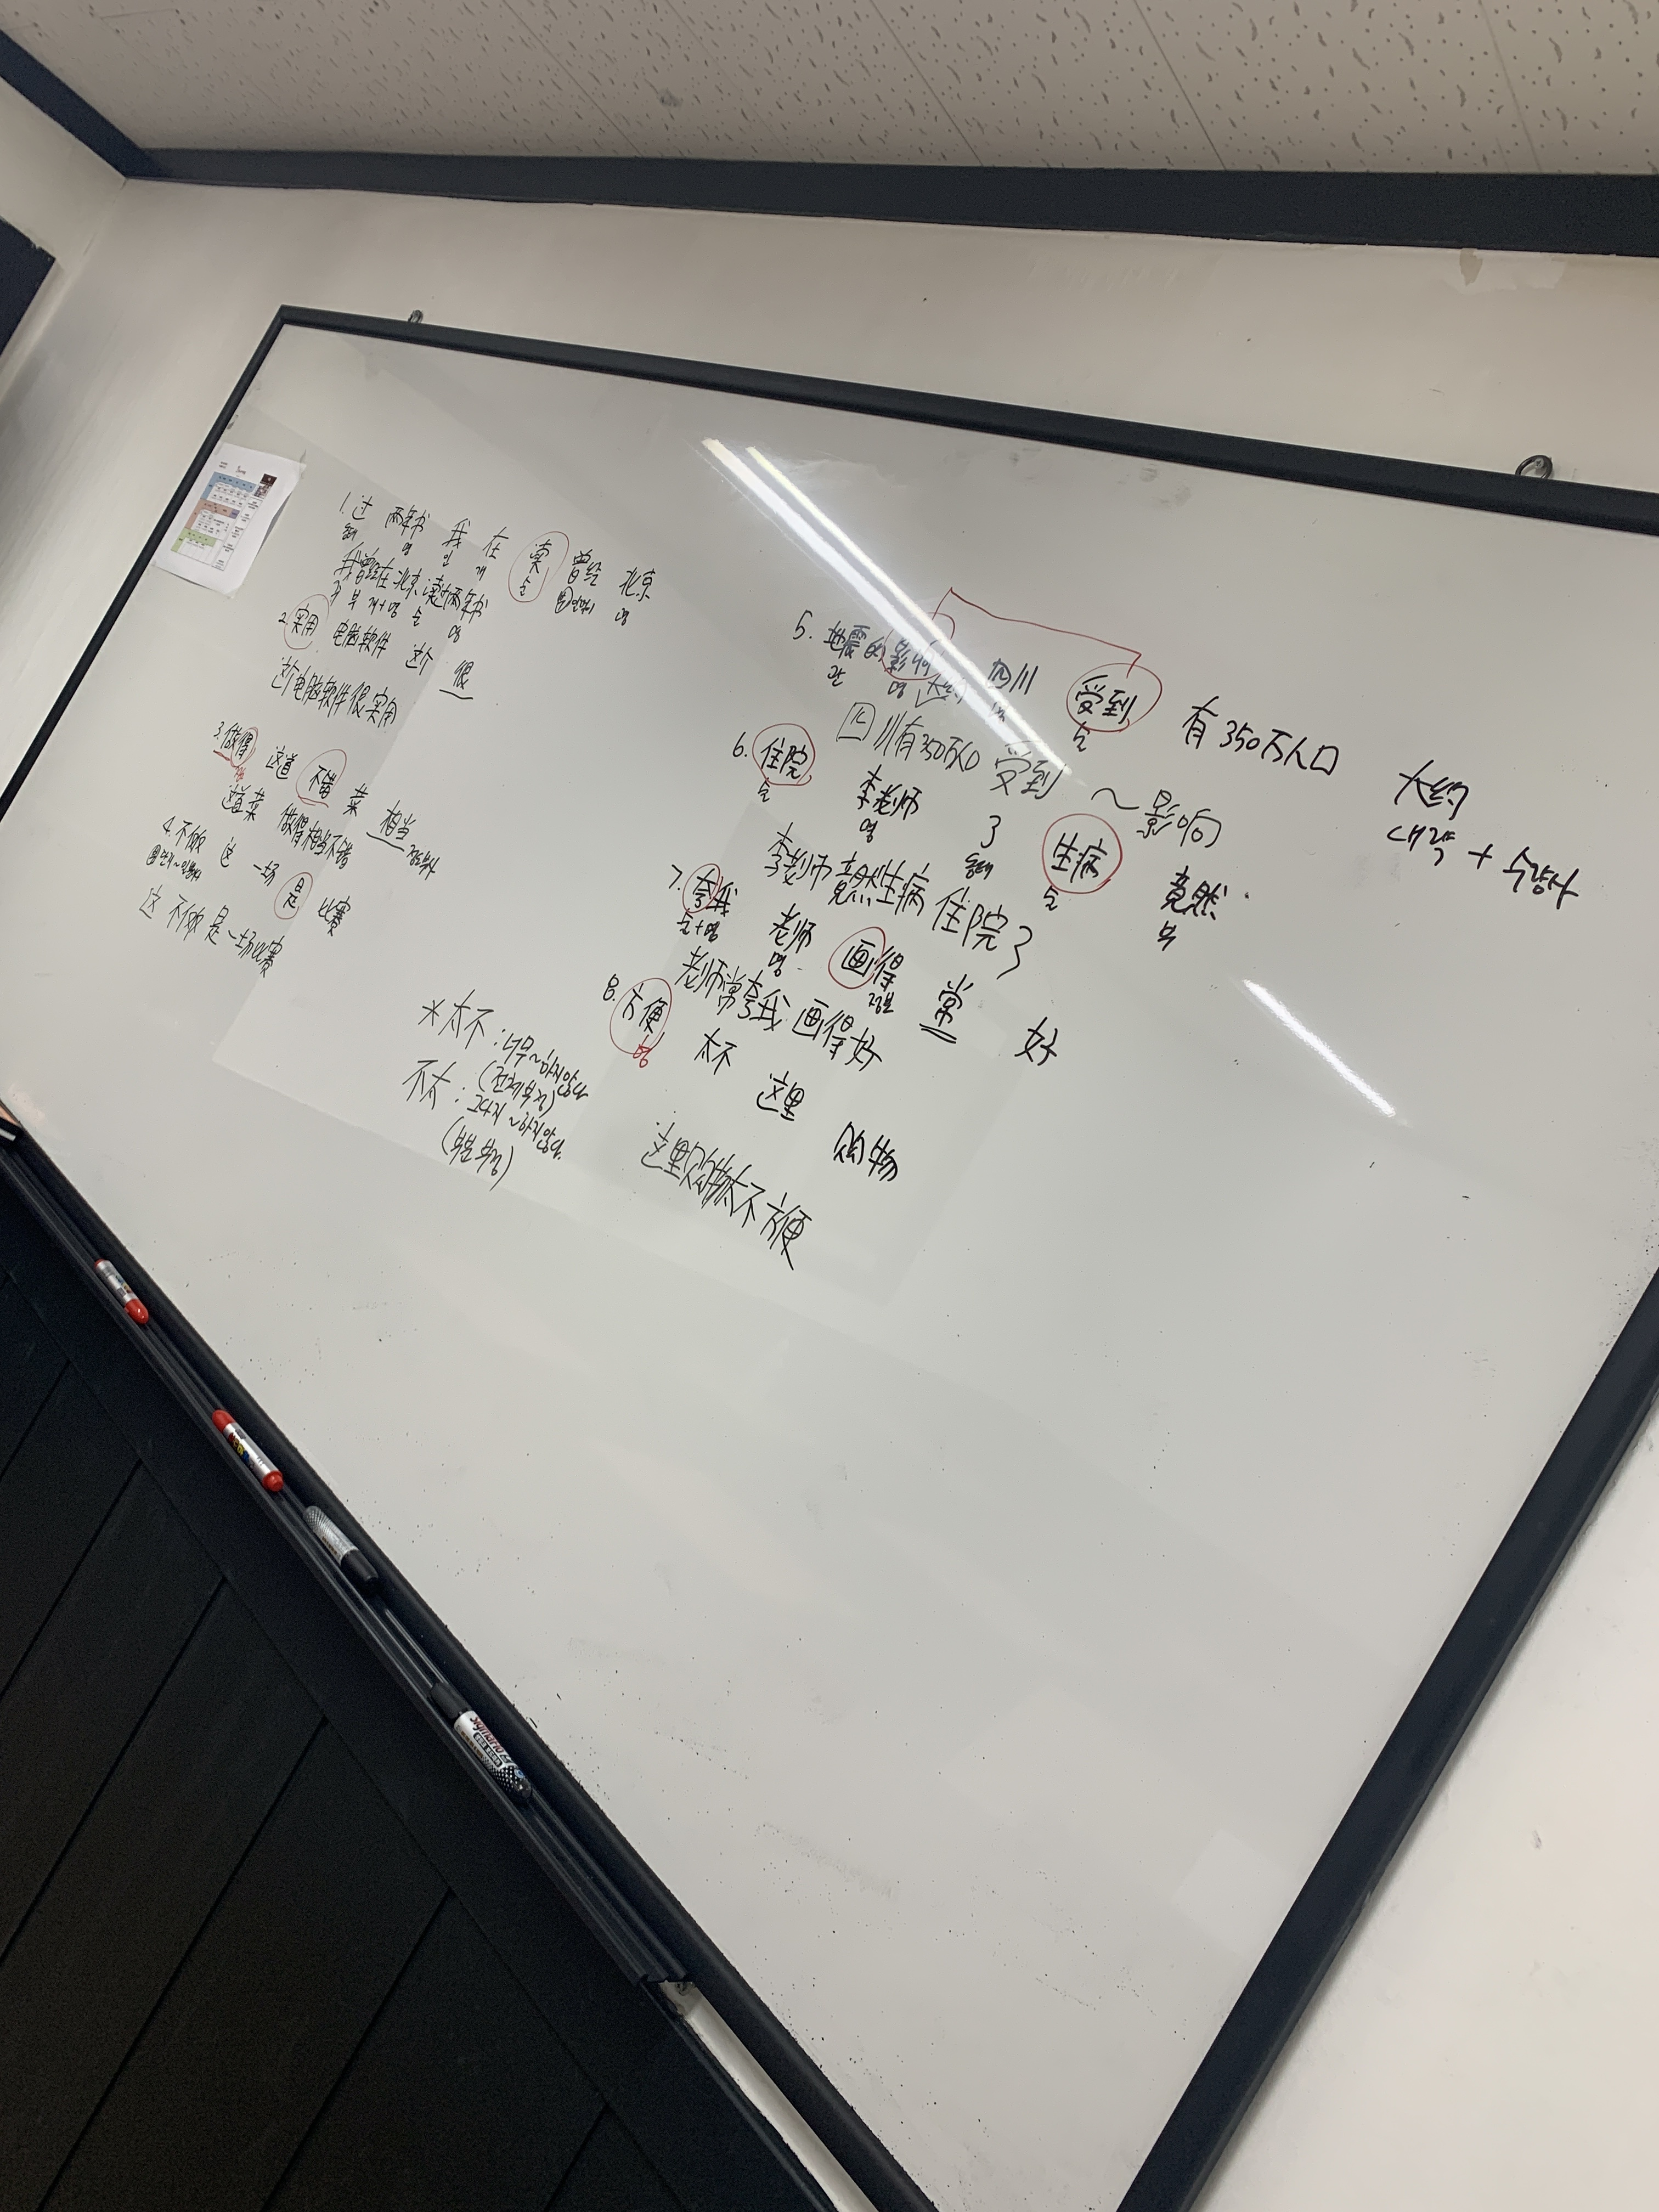 1. 过 两年书 我 在 读 曾经 北京
동태 명 인 개 동 명
我曾经在北京读过两年书
주 부 개+명 동 명
2. 实用 电脑软件 这个 很
这个电脑软件很实用
3. 做得 这道 不错 菜 相当
정도부사
这道菜 做得相当不错
4. 不仅 这 一场 是 比赛
这 不仅 是 一场比赛
* 太不 : 너무~하지않다
(전체부정)
不太 : 그다지~하지않다.
(부분부정)
5. 地震的影响 四川 受到 有350万人口 大约
관 명 동 대략 + 수량사
四川有350万人口 受到 ~影响
大约
6. 住院 李老师 了 生病 竟然
동 명 동태 동 부
李老师竟然生病 住院了
7. 夸我 老师 画得 常 好
동+명 명 정보
老师常夸我 画得好
8. 方便 太不 这里 购物
형
这里购物太不方便